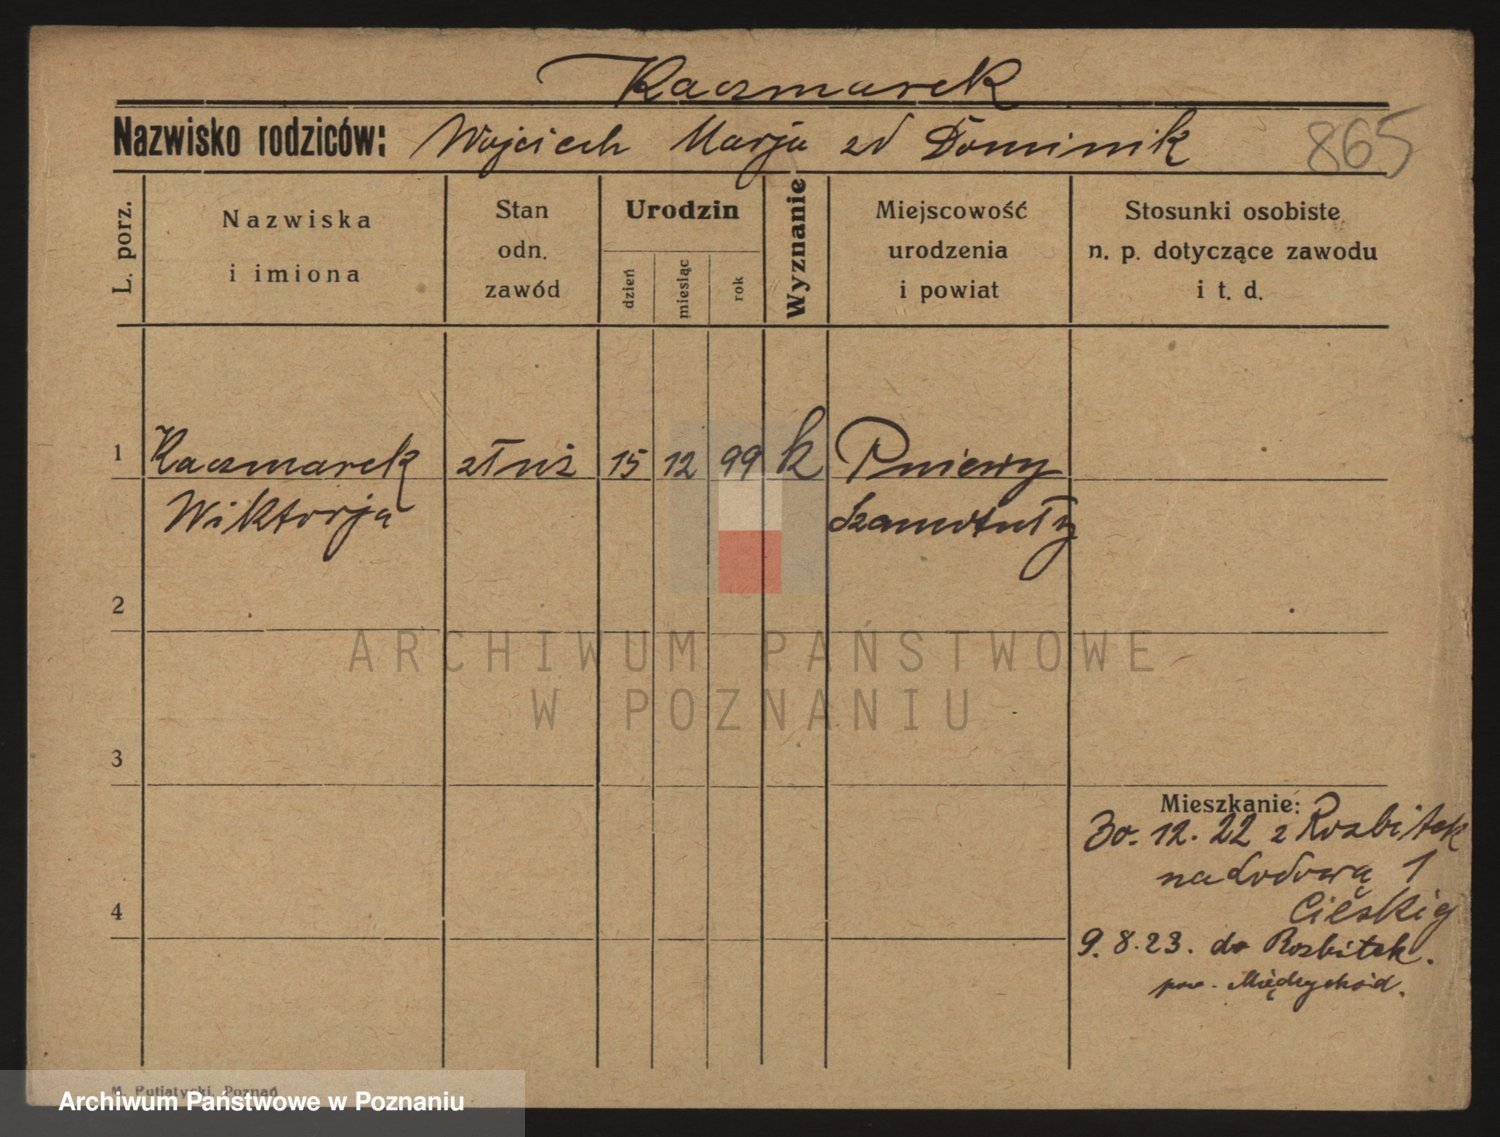 Kaczmarek
Nazwisko rodziców: Wojciech Marja zd Dominik 865
L. porz.
Nazwiska i imiona
Stan odn. zawód
Urodzin
dzień miesiąc rok
Wyznanie
Miejscowość urodzenia i powiat
Stosunki osobiste n. p. dotyczące zawodu i t. d.
1 Kaczmarek służ 15 12 99 k Pniewy
Wiktorja Szamotuły
2
ARCHIWUM PAŃSTWOWE
W POZNANIU
3
Mieszkanie:
30. 12. 22 z Rozbitek
na Łodową 1
4
9. 8. 23. do Rozbitek.
pow. Międzychód.
M. Putiatycki, Poznań
Archiwum Państwowe w Poznaniu